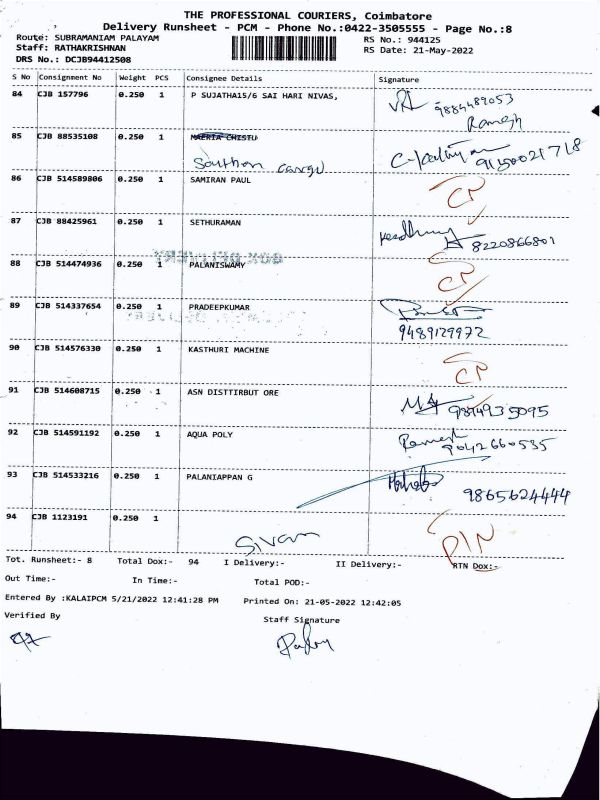 THE PROFESSIONAL COURIERS, Coimbatore
Delivery Runsheet - PCM - Phone No.:0422-3505555 - Page No.:8
Route: SUBRAMANIAM PALAYAM
RS No.: 944125
Staff: RATHAKRISHNAN
RS Date: 21-May-2022
DRS No.: DCJB94412508
S No Consignment No Weight PCS Consignee Details Signature
84 CJB 157796 0.250 1 P SUJATHA15/6 SAI HARI NIVAS, 9884489053
Ramesh
85 CJB 88535108 0.250 1 MAERIA CHISTU
Southern cargo 9150021718
86 CJB 514589806 0.250 1 SAMIRAN PAUL CP
87 CJB 88425961 0.250 1 SETHURAMAN
8220866801
88 CJB 514474936 0.250 1 PALANISWAMY CP
89 CJB 514337654 0.250 1 PRADEEPKUMAR
9489129972
90 CJB 514576330 0.250 1 KASTHURI MACHINE CP
91 CJB 514608715 0.250 1 ASN DISTTIRBUT ORE
92 CJB 514591192 0.250 1 AQUA POLY Ramesh
9042660535
93 CJB 514533216 0.250 1 PALANIAPPAN G
9865624444
94 CJB 1123191 0.250 1
Sivam PIN
Tot. Runsheet:- 8 Total Dox:- 94 I Delivery:- II Delivery:- RTN Dox:-
Out Time:- In Time:- Total POD:-
Entered By :KALAIPCM 5/21/2022 12:41:28 PM Printed On: 21-05-2022 12:42:05
Verified By Staff Signature